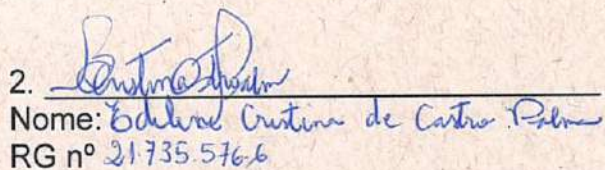 2.
Nome: Edilene Cristina de Castro Palma
RG nº 21.735.576-6